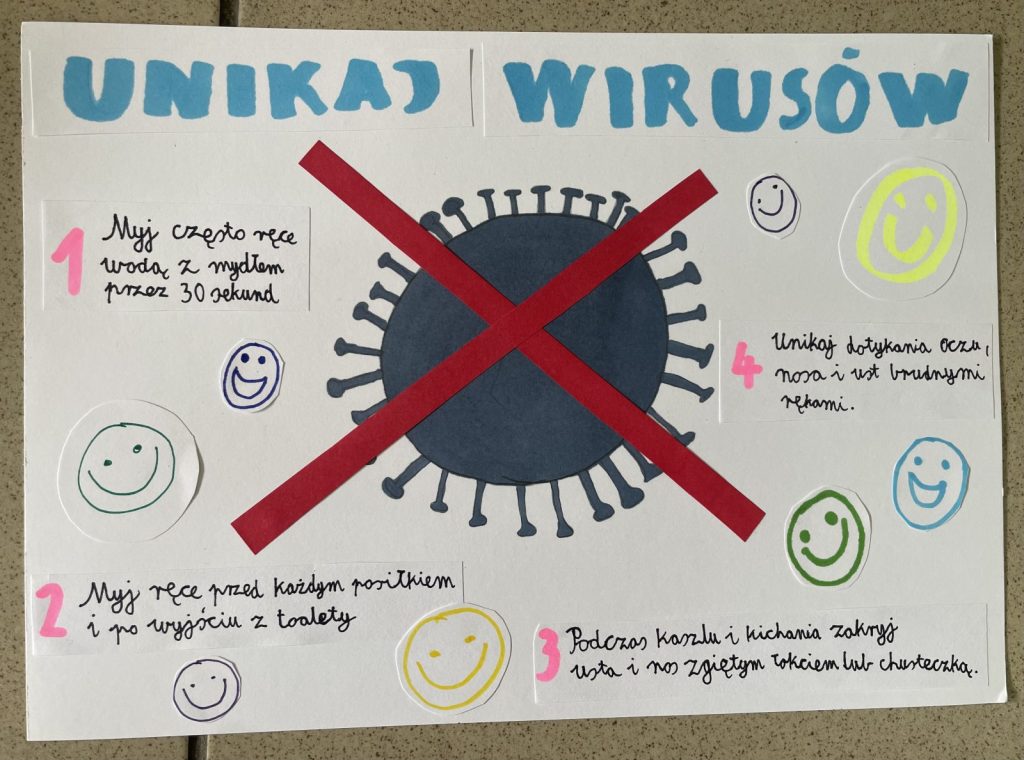 UNIKAJ WIRUSÓW
1 Myj często ręce
wodą z mydłem
przez 30 sekund
2 Myj ręce przed każdym posiłkiem
i po wyjściu z toalety
3 Podczas kaszlu i kichania zakryj
usta i nos zgiętym łokciem lub chusteczką.
4 Unikaj dotykania oczu,
nosa i ust brudnymi
rękami.